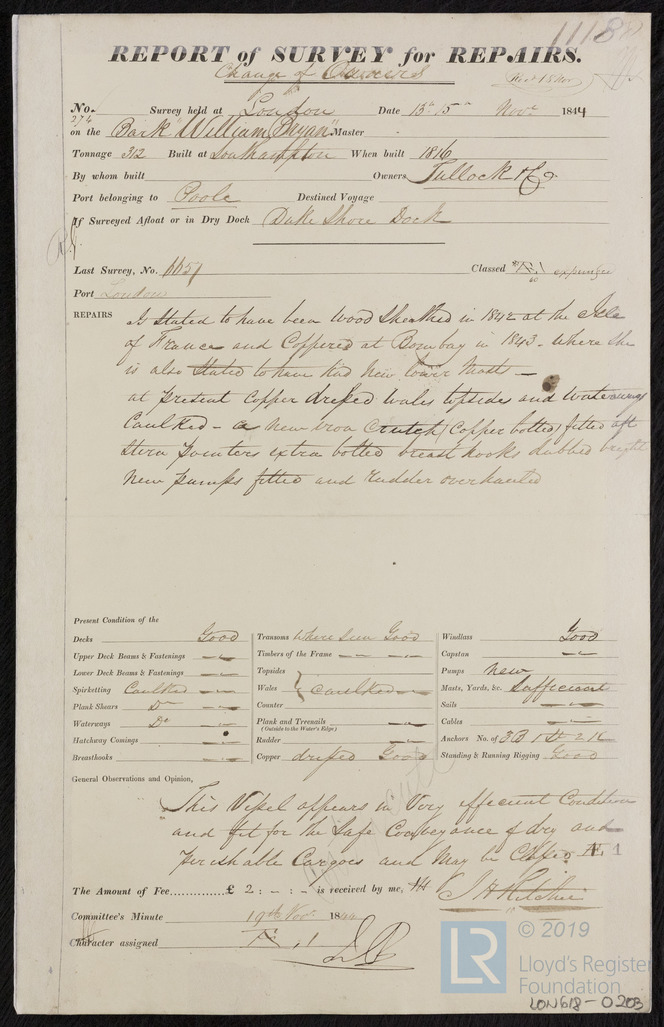 1118
REPORT of SURVEY for REPAIRS.
Change of Owners
No. 374 Survey held at London Date 13th 15th Novr 1844
on the Bark "William Bryan" Master
Tonnage 312 Built at Southampton When built 1816
By whom built Owners Tullock & Co.
Port belonging to Poole Destined Voyage
If Surveyed Afloat or in Dry Dock Duke Shore Dock
Last Survey, No. 6657 Classed Æ 1 expunged
Port London
REPAIRS Is Stated to have been Wood Sheathed in 1842 at the Isle
of France and Coppered at Bombay in 1843 - where she
is also Stated to have had New lower Mast -
at present Copper dressed wales topsides and Waterways
Caulked - a new iron Crutch (Copper bolted) fitted aft
Stern pointers extra bolted breast hooks dubbed bright
New pumps fitted and rudder overhauled
Present Condition of the
Decks Good
Upper Deck Beams & Fastenings
Lower Deck Beams & Fastenings
Spirketting Caulked
Plank Shears Do
Waterways Do
Hatchway Comings
Breasthooks
Transoms Where seen Good
Timbers of the Frame
Topsides
Wales } Caulked
Counter
Plank and Treenails
(Outside to the Water's Edge)
Rudder
Copper dressed Good
Windlass Good
Capstan
Pumps New
Masts, Yards, &c. Sufficient
Sails
Cables
Anchors No. of 3B 1St 2 K
Standing & Running Rigging Good
General Observations and Opinion,
This Vessel appears in Very efficient Condition
and fit for the Safe Conveyance of dry and
perishable Cargoes and May be Classed Æ 1
The Amount of Fee............£ 2 : - : - is received by me, J H Ritchie
Committee's Minute 19th Novr. 1844
Character assigned Æ 1
LR © 2019
Lloyd's Register
Foundation
LON618-0203